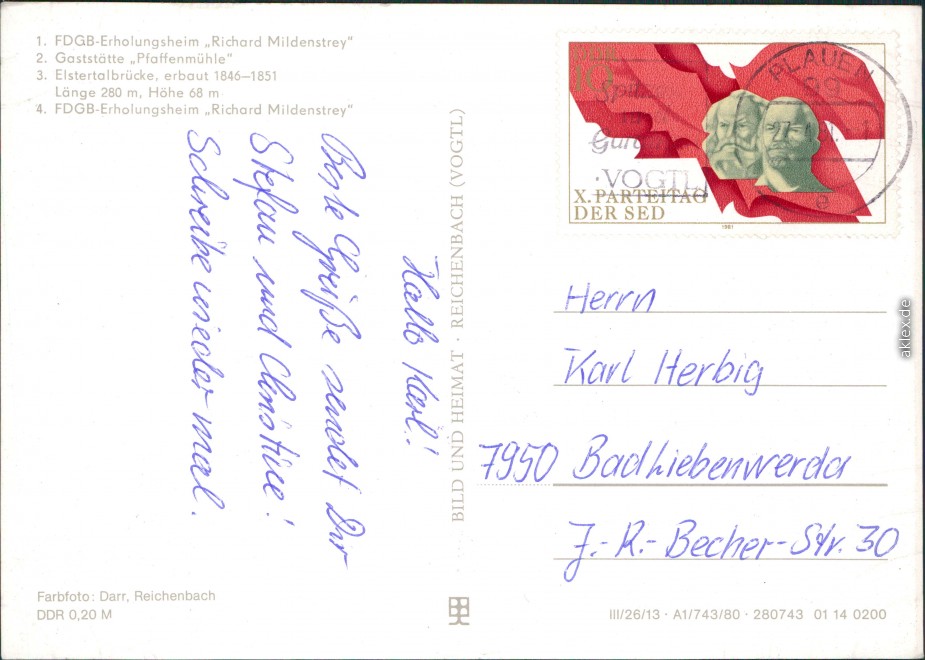 1. FDGB-Erholungsheim „Richard Mildenstrey“
2. Gaststätte „Pfaffenmühle“
3. Elstertalbrücke, erbaut 1846–1851
Länge 280 m, Höhe 68 m
4. FDGB-Erholungsheim „Richard Mildenstrey“
Hallo Karl!
Beste Grüße sendet Dir
Stefan und Christine!
Schreibe wieder mal.
BILD UND HEIMAT · REICHENBACH (VOGTL)
DDR
10
X. PARTEITAG
DER SED
1981
PLAUEN
99
e
·VOGTL
Herrn
Karl Herbig
7950 Bad Liebenwerda
J.-R.-Becher-Str. 30
aklex.de
Farbfoto: Darr, Reichenbach
DDR 0,20 M
III/26/13 · A1/743/80 · 280743 01 14 0200